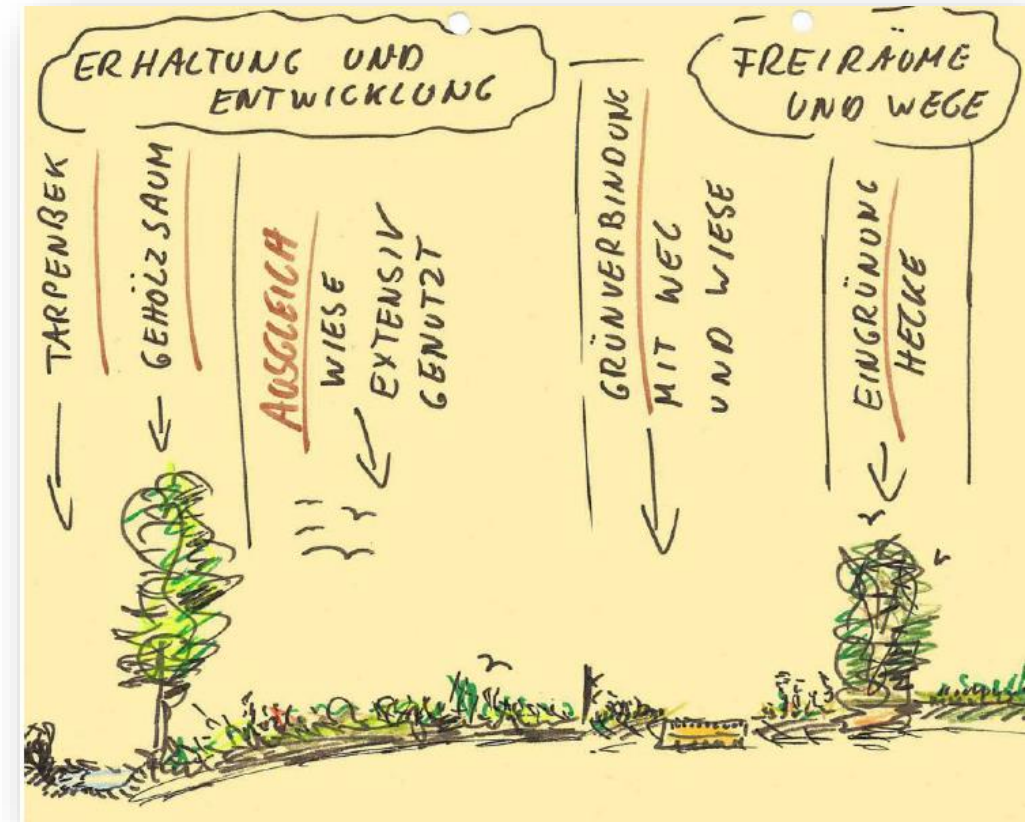 ERHALTUNG UND
ENTWICKLUNG
FREIRÄUME
UND WEGE
TARPENBEK
GEHÖLZSAUM
AUSGLEICH
WIESE
EXTENSIV
GENUTZT
GRÜNVERBINDUNG
MIT WEG
UND WIESE
EINGRÜNUNG
HECKE